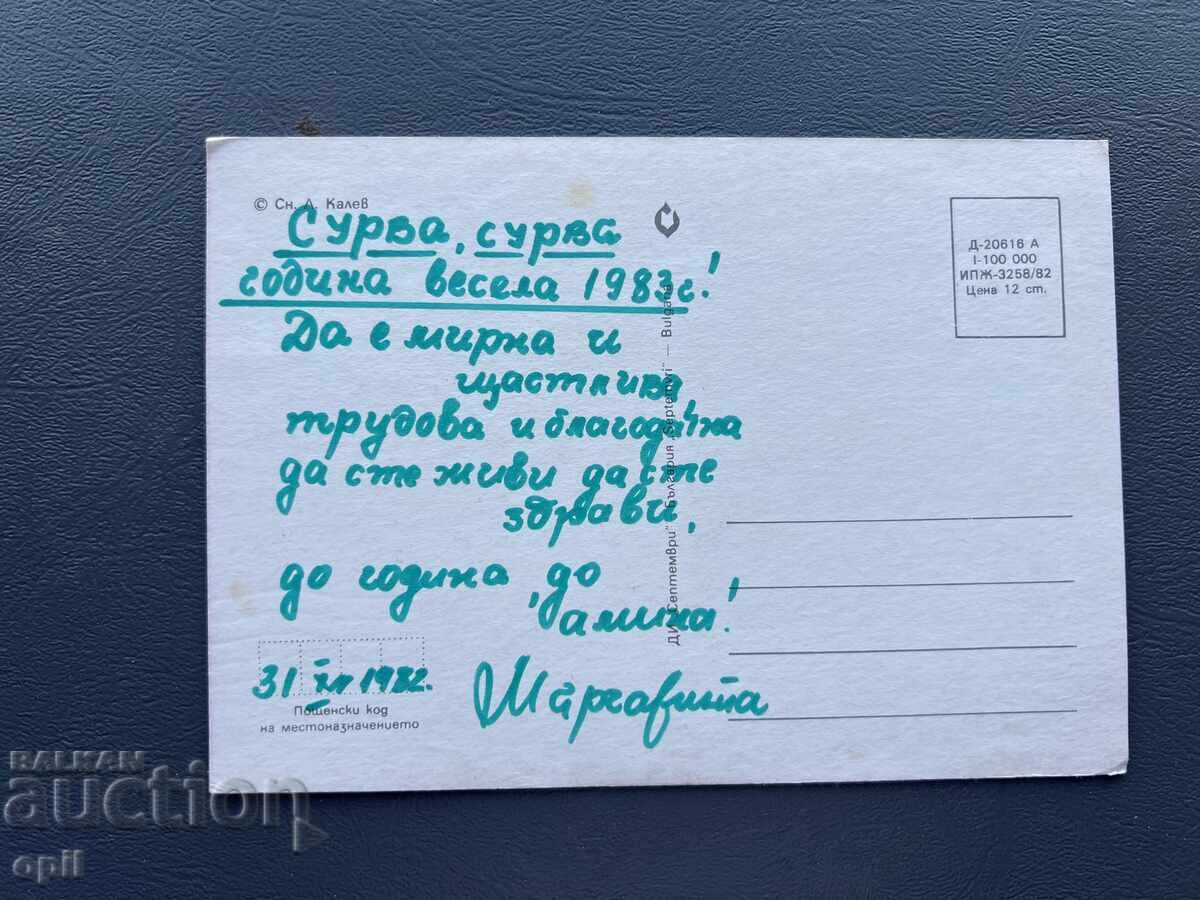 © Сн. Д. Калев
Сурва, сурва
година весела 1983г!
Да е мирна и
щастлива,
трудова и благодатна
да сте живи да сте
здрави,
до година, до
амина!
31 XII 1982.
Маргарита
Пощенски код
на местоназначението
ДИ „Септември“ — България „Septemvri“ — Bulgaria
Д-20616 А
I-100 000
ИПЖ-3258/82
Цена 12 ст.
BALKAN
auction
opil